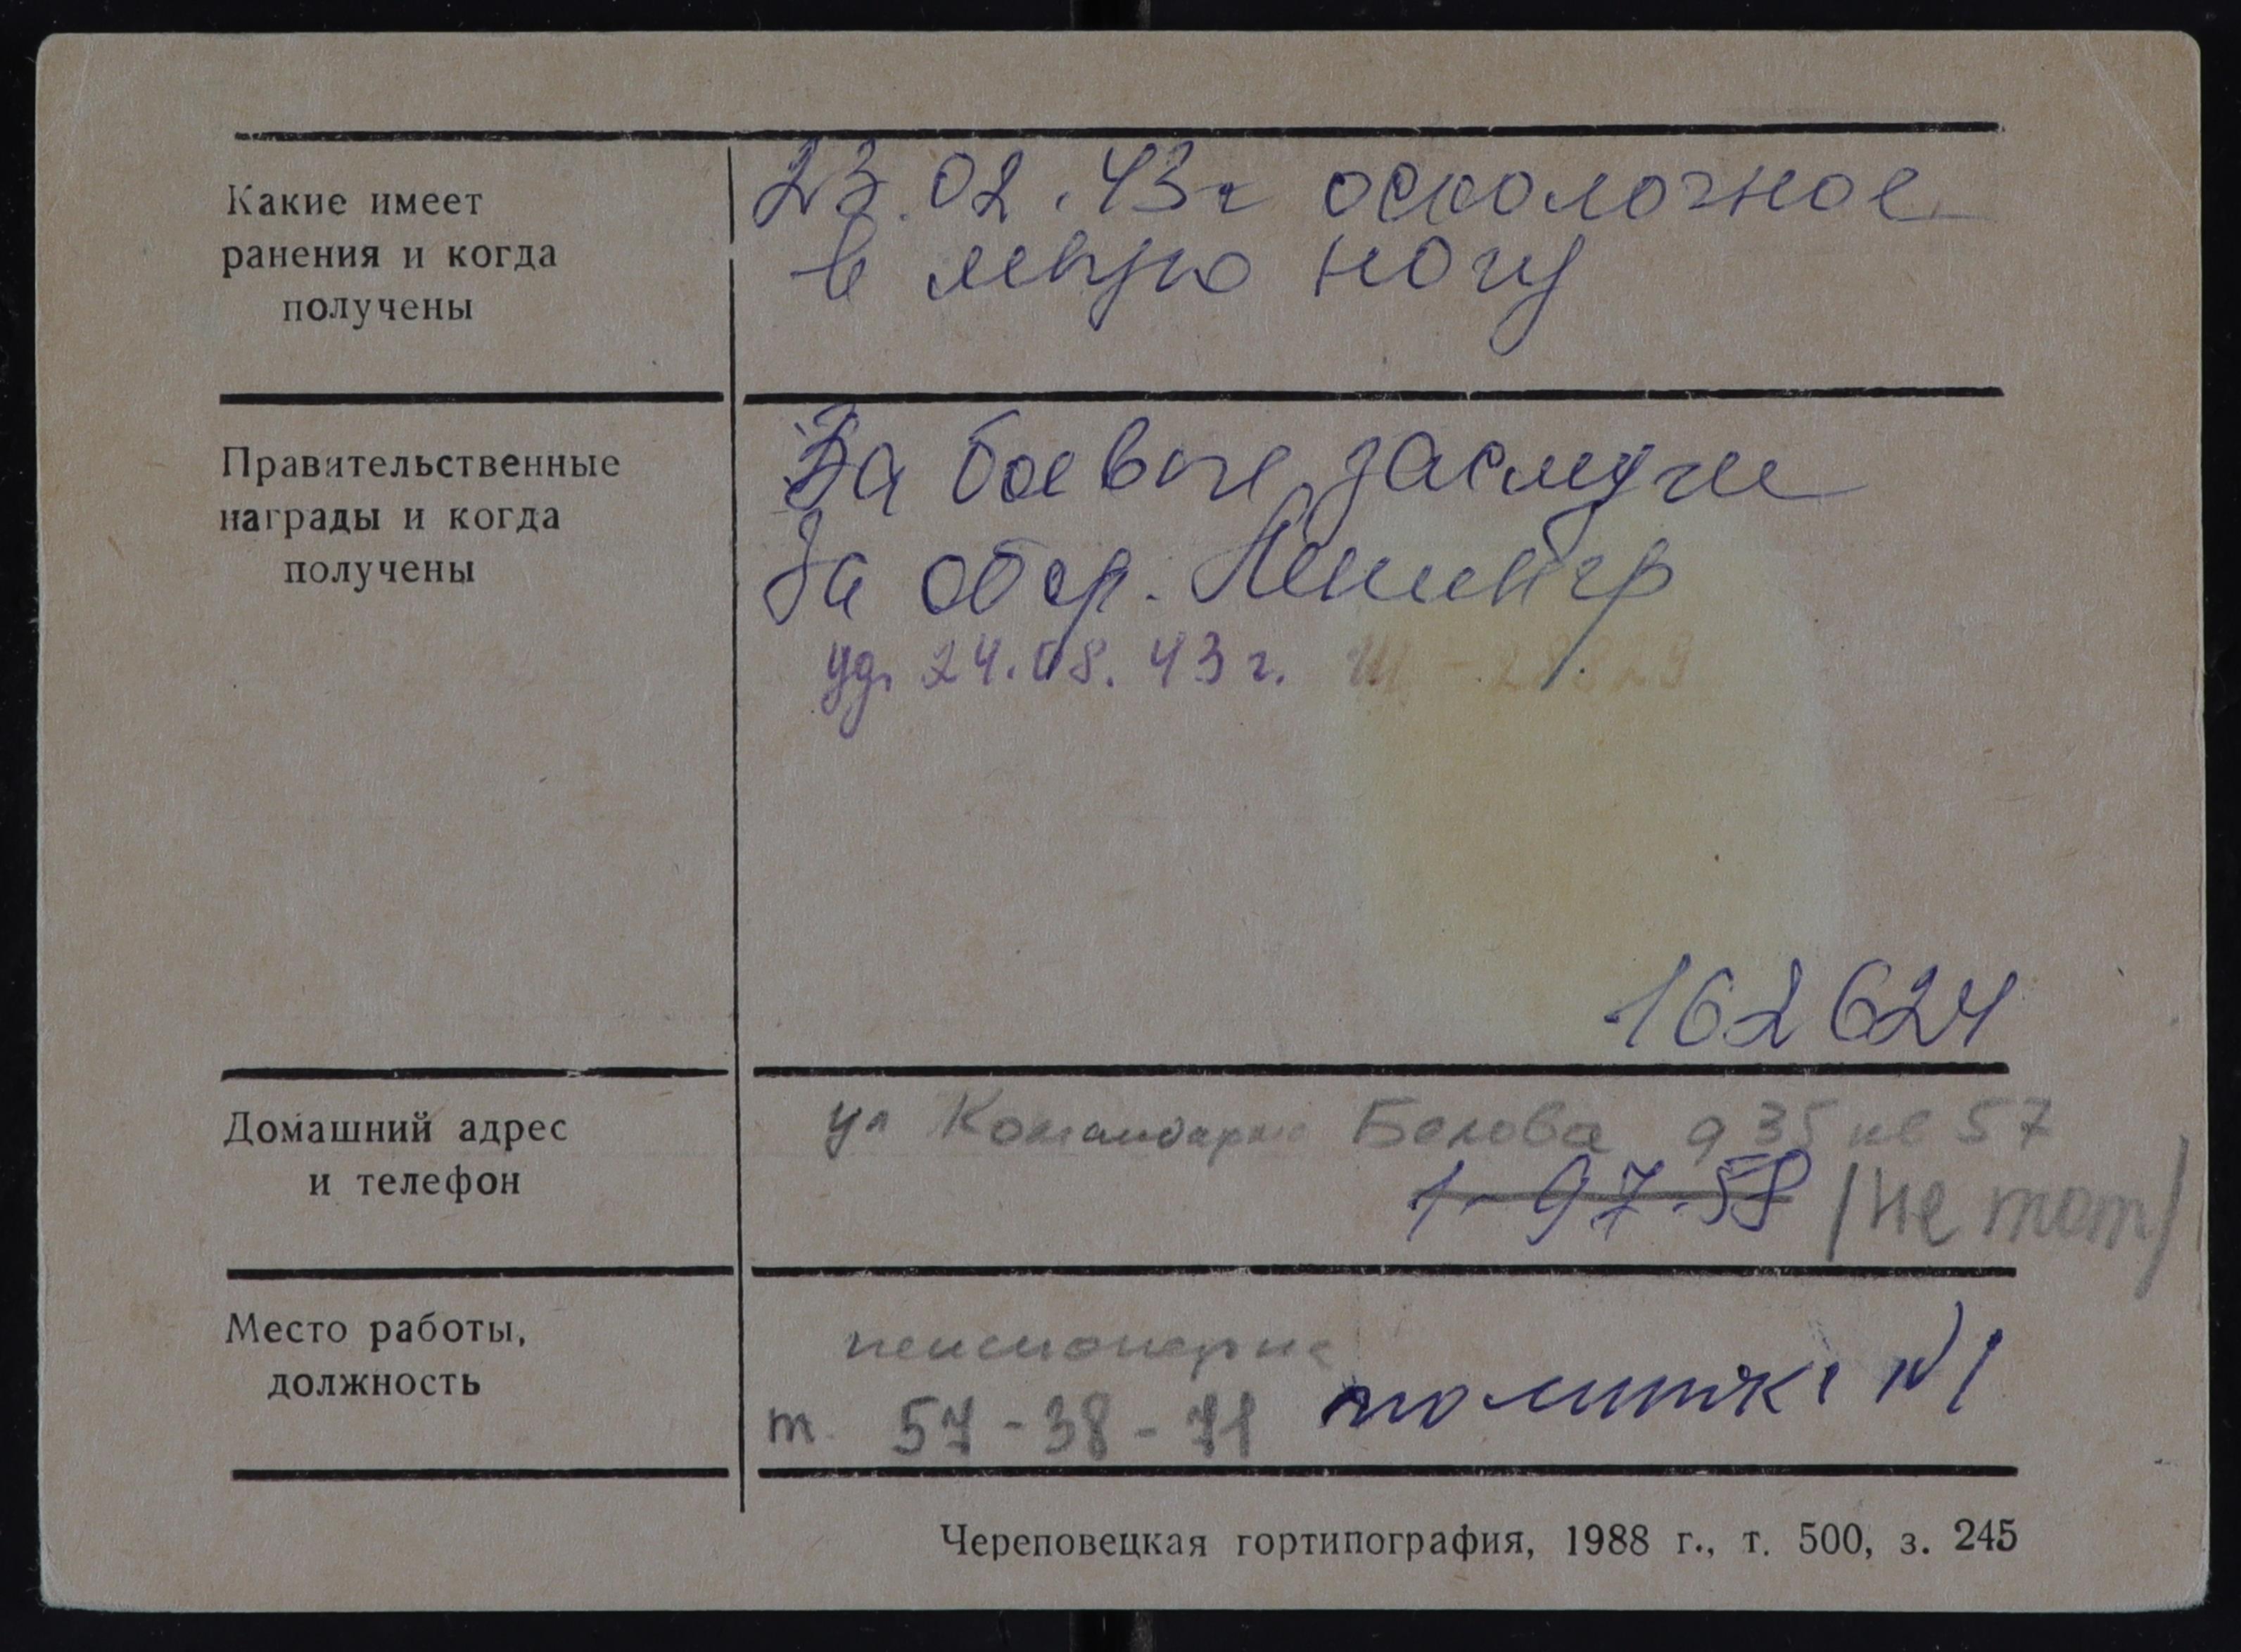 Какие имеет
ранения и когда
получены
23.02.43г осколочное
в левую ногу
Правительственные
награды и когда
получены
За боевые заслуги
За обор. Ленингр
уд. 24.08.43 г.
162624
Домашний адрес
и телефон
ул Командарма Белова д 35 кв 57
1-97-58 /не тот/
Место работы,
должность
пенсионерка
т. 57-38-71
N1
Череповецкая гортипография, 1988 г., т. 500, з. 245